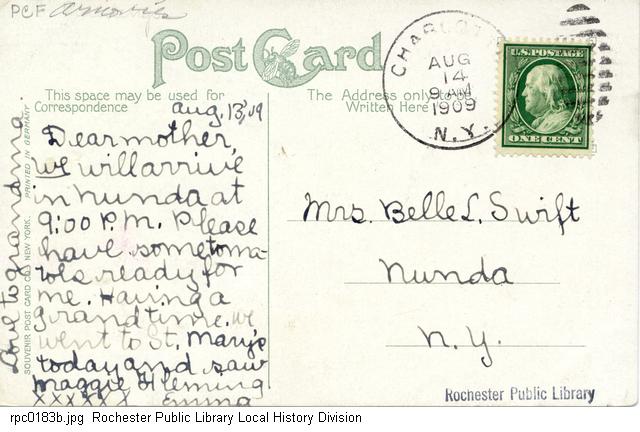 PCF armories
Post Card
This space may be used for
Correspondence
The Address only to be
Written Here
CHARLOTTE
AUG
14
9 AM
1909
N.Y.
U.S. POSTAGE
ONE CENT
Aug. 13, 09
Dear mother,
we will arrive
in Nunda at
9:00 P.M. Please
have some toma-
toes ready for
me. Having a
grand time. We
went to St. Marys
today and saw
Maggie Fleming
xxxxxx Emma
Love to grandma.
SOUVENIR POST CARD CO., NEW YORK. PRINTED IN GERMANY.
Mrs. Belle L. Swift
Nunda
N.Y.
Rochester Public Library
rpc0183b.jpg Rochester Public Library Local History Division